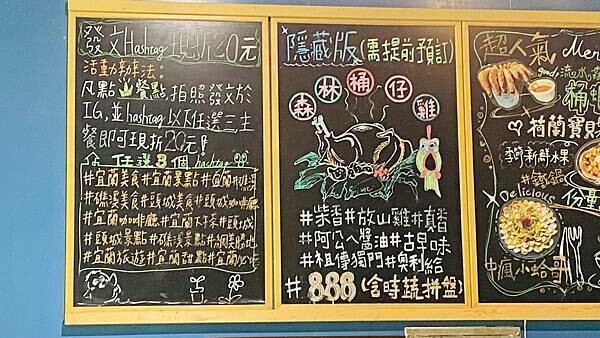 發文Hashtag 現折20元
活動辦法:
凡點餐點拍照發文於
IG,並hashtag以下任選三主
餐即可現折20元!
任選3個 hashtag
#宜蘭美食#宜蘭景點#宜蘭
#礁溪美食#頭城美食#頭城咖啡廳
#宜蘭咖啡廳#宜蘭下午茶#頭城
#頭城景點#礁溪景點#網美勝地
#宜蘭旅遊#宜蘭甜點#宜蘭
隱藏版(需提前預訂)
森林桶仔雞
#柴香#放山雞#真香
#阿公ㄟ醬油#古早味
#祖傳獨門#奧利給
#888(含時蔬拼盤)
超人氣 Menu
good
流水
桶
荷蘭寶貝
季節新鮮水果
#鑄鐵鍋
Delicious
份量
中瘋小蛤哥